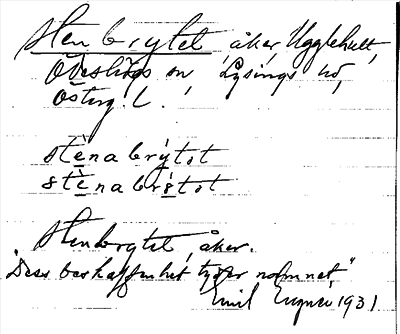 Stenbrytet, åker, Ugglehult,
Ödeshögs sn, Lysings hd,
Österg. l.
stènabrýtɩt
stènabrýtɩt
Stenbrytet, åker.
"Dess beskaffenhet tyder namnet"
Emil 1931